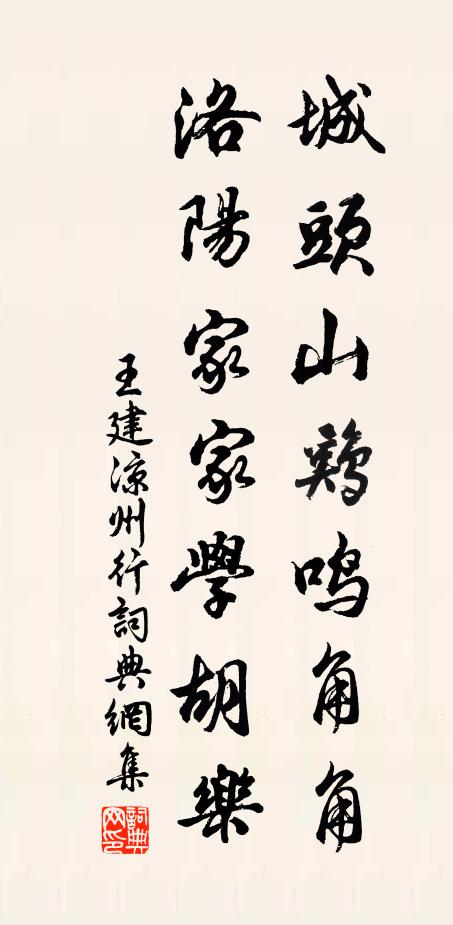 城頭山鷄鳴角角
洛陽家家學胡樂
王建涼州行詞典網集
詞典网印